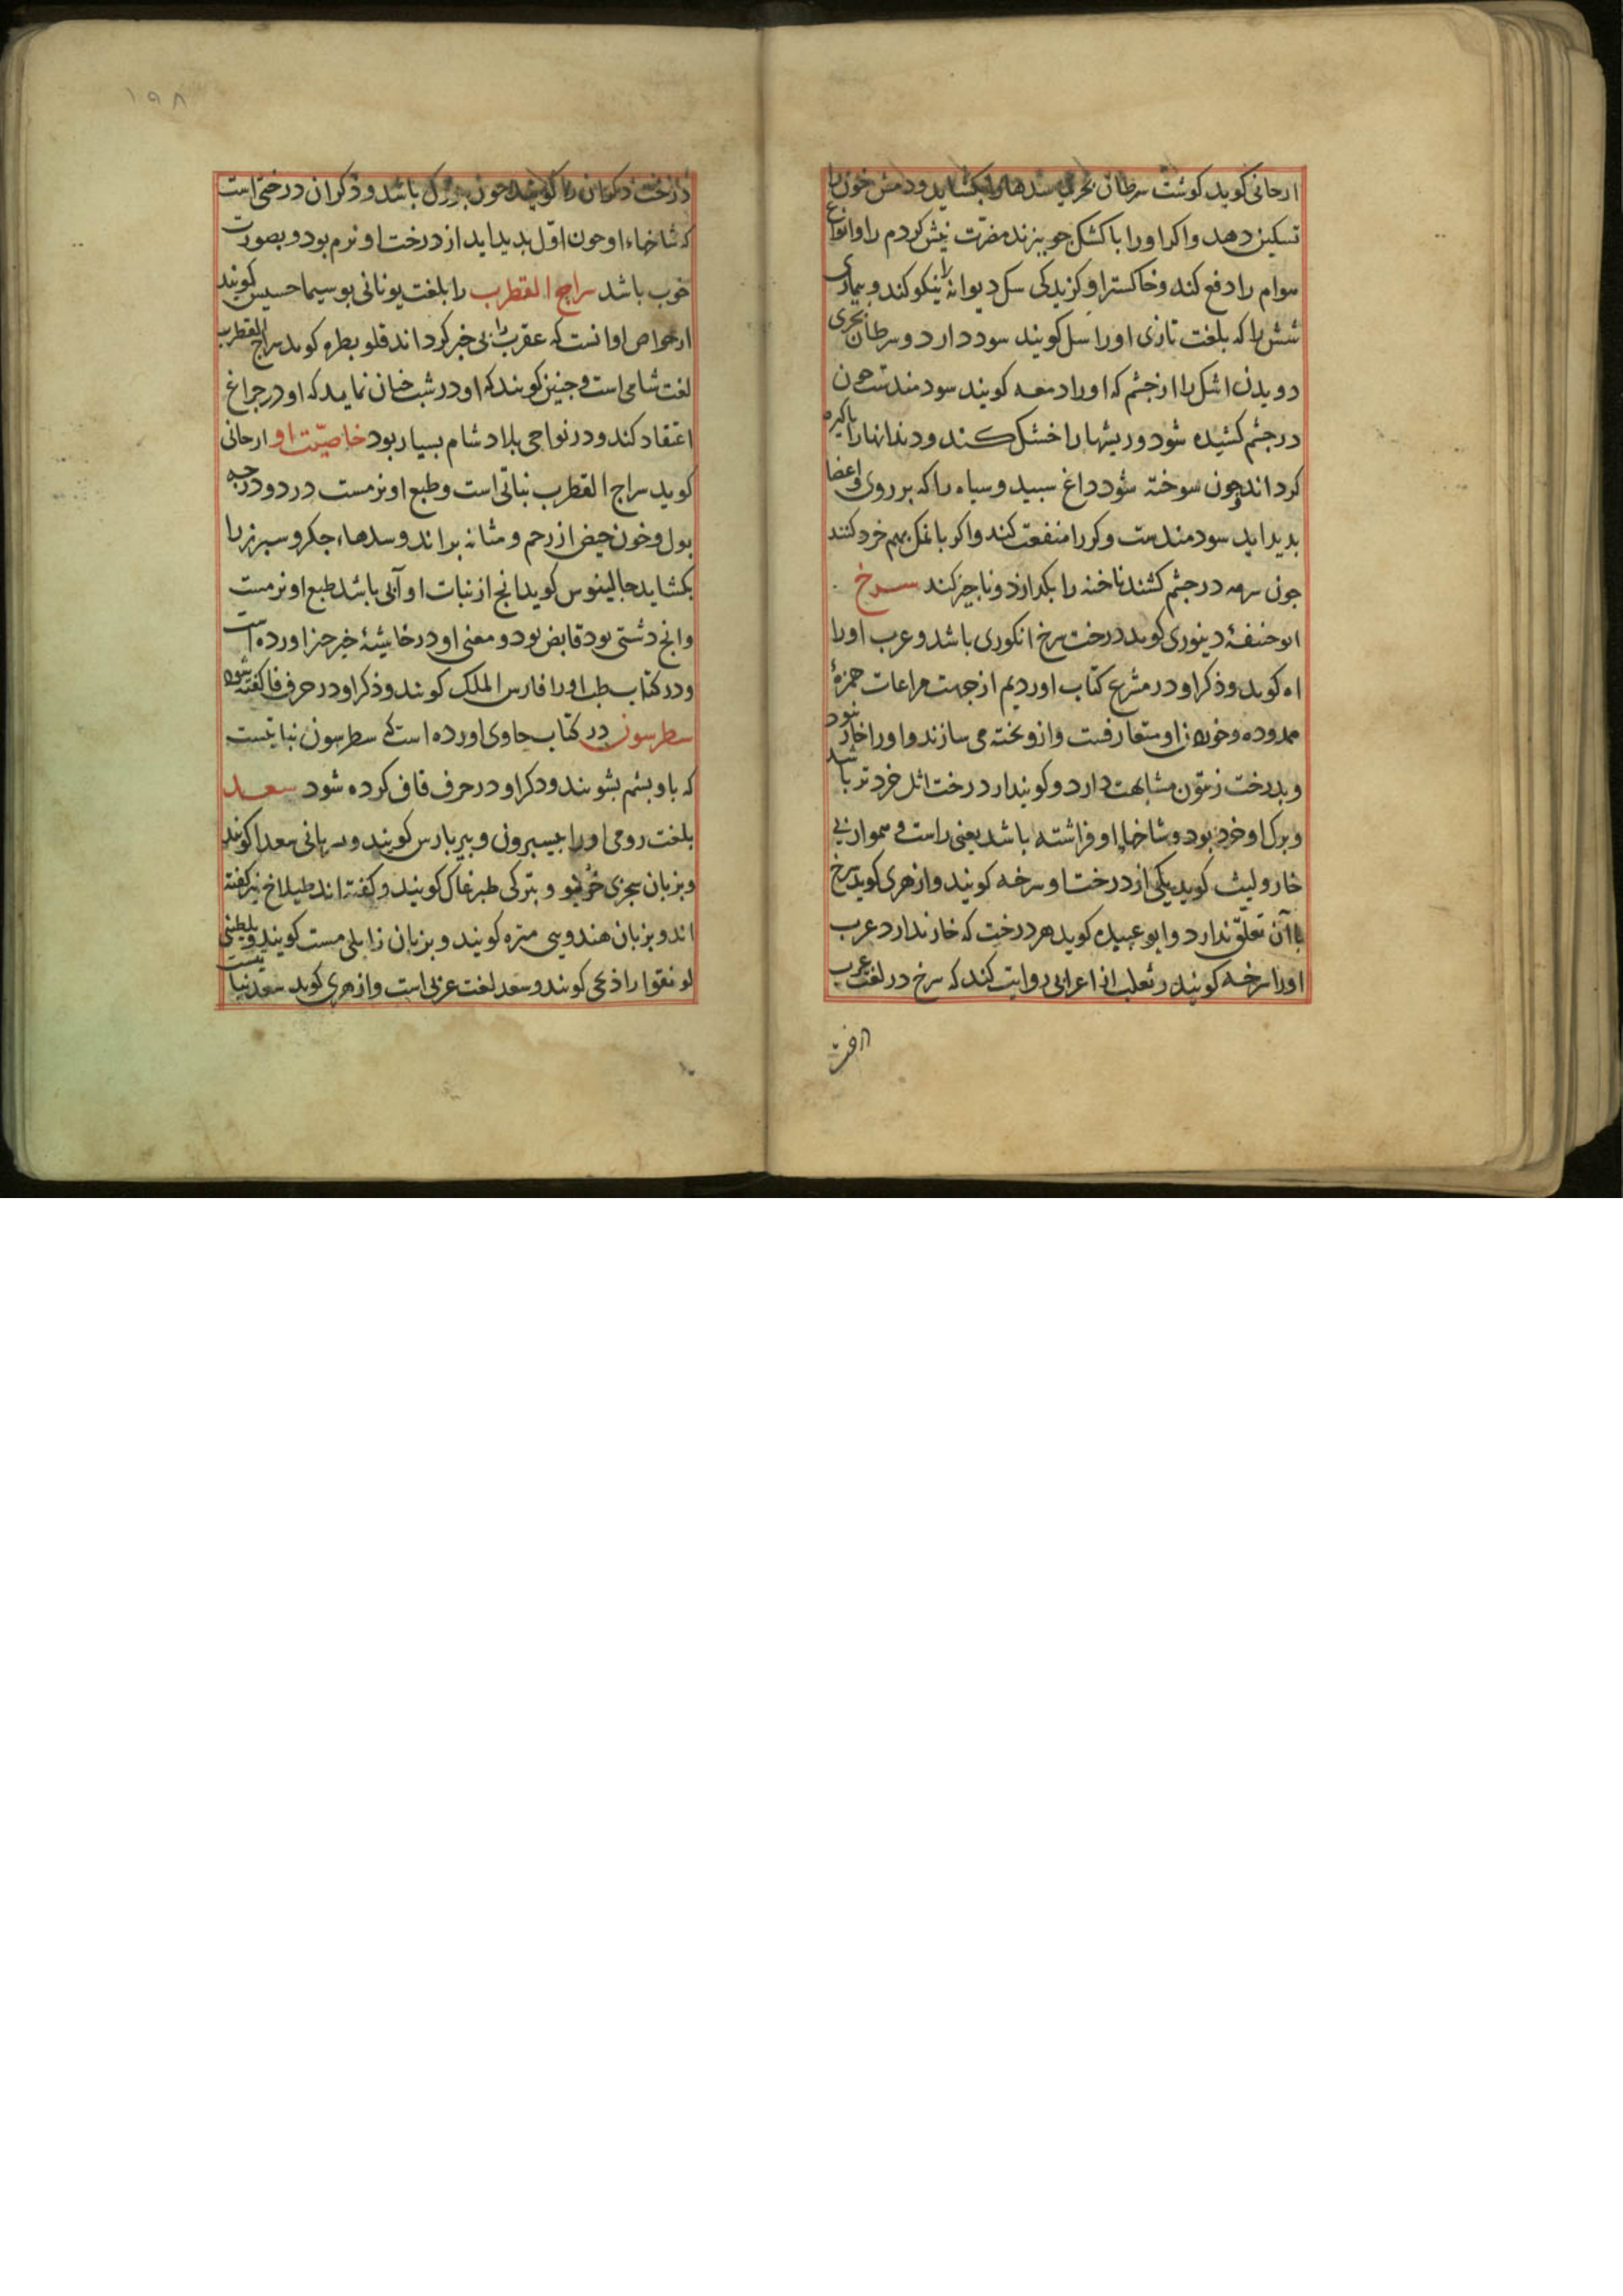 ارجانی کوید کوشت سرطان بحری سدها را بکشاید و دمش خون را
تسکین دهد و اکر او را با کشک جو بپزند مضرت نیش کژدم را و انواع
هوام را دفع کند و خاکستر او کزیدکی سک دیوانه را نیکو کند و بیماری
شش را که بلغت تازی او را سل کویند سود دارد و سرطان بحری
دویدن اشک را از چشم که او را دمعه کویند سودمندست چون
در چشم کشیده شود و ریشها را خشک کند و دندانها را پاکیزه
کرداند و چون سوخته شود داغ سپید و سیاه را که بر روی و اعضا
بدید اید سودمندست و کر را منفعت کند و اکر با نمک بهم خرد کنند
چون سرمه در چشم کشند ناخنه را بکدازد و ناچیز کند سرخ
ابو حنیفهٔ دینوری کوید درخت سرخ انکوری باشد و عرب او را
اه کوید و ذکر او در مشرع کتاب اوردیم از جهت مراعات حمزهٔ
ممدوده و خوردن او متعارفست و ازو تخته می سازند و او را خار نبود
و بدرخت زیتون مشابهت دارد و کویند از درخت اثل خردتر باشد
و برک او خرد بود و شاخها او فراشته باشد یعنی راست و هموار بی
خار و لیث کوید یکی از درخت او سرخه کویند و ازهری کوید سرخ
با آن تعلّق ندارد و ابو عبیده کوید هر درخت که خار ندارد عرب
او را سرخه کویند و ثعلب از اعرابی روایت کند که سرخ در لغت عرب
۱۹۸
درخت ذکوان را کویند چون بزرک باشد و ذکوان درختی است
که شاخهاء او چون اوّل بدید اید از درخت او نرم بود و بصورت
خوب باشد سراج القطرب را بلغت یونانی بوسیماحسیس کویند
از خواص او انست که عقرب را بی خبر کرداند قلوبطره کوید سراج القطرب
لغت شامی است و چنین کویند که او در شب چنان نماید که او در چراغ
اعتقاد کند و در نواحی بلاد شام بسیار بود خاصیّت او ارجانی
کوید سراج القطرب نباتی است و طبع او نرمست در دو درجه
بول و خون حیض از رحم و مثانه براند و سدهاء جکر و سپرز را
بکشاید جالینوس کوید انج از نبات او آبی باشد طبع او نرمست
و انج دشتی بود قابض بود و معنی او در حاشیهٔ اورده است
و در کتاب طب او را فارس الملک کویند و ذکر او در حرف فا کفته شود
سطرسون در کتاب حاوی اورده است که سطرسون نباتیست
که باو پشم بشویند و ذکر او در حرف قاف کرده شود سعد
بلغت رومی او را بیسبرون و بیربارس کویند و سریانی سعدا کویند
و بزبان سجزی و بترکی طبرغاک کویند و کفته اند طیلاخ نیز کفته
اند و بزبان هندویی متره کویند و بزبان زابلی مست کویند و بلطینی
لونقوا راذعی کویند و سعد لغت عربی است و ازهری کوید سعد نباتیست